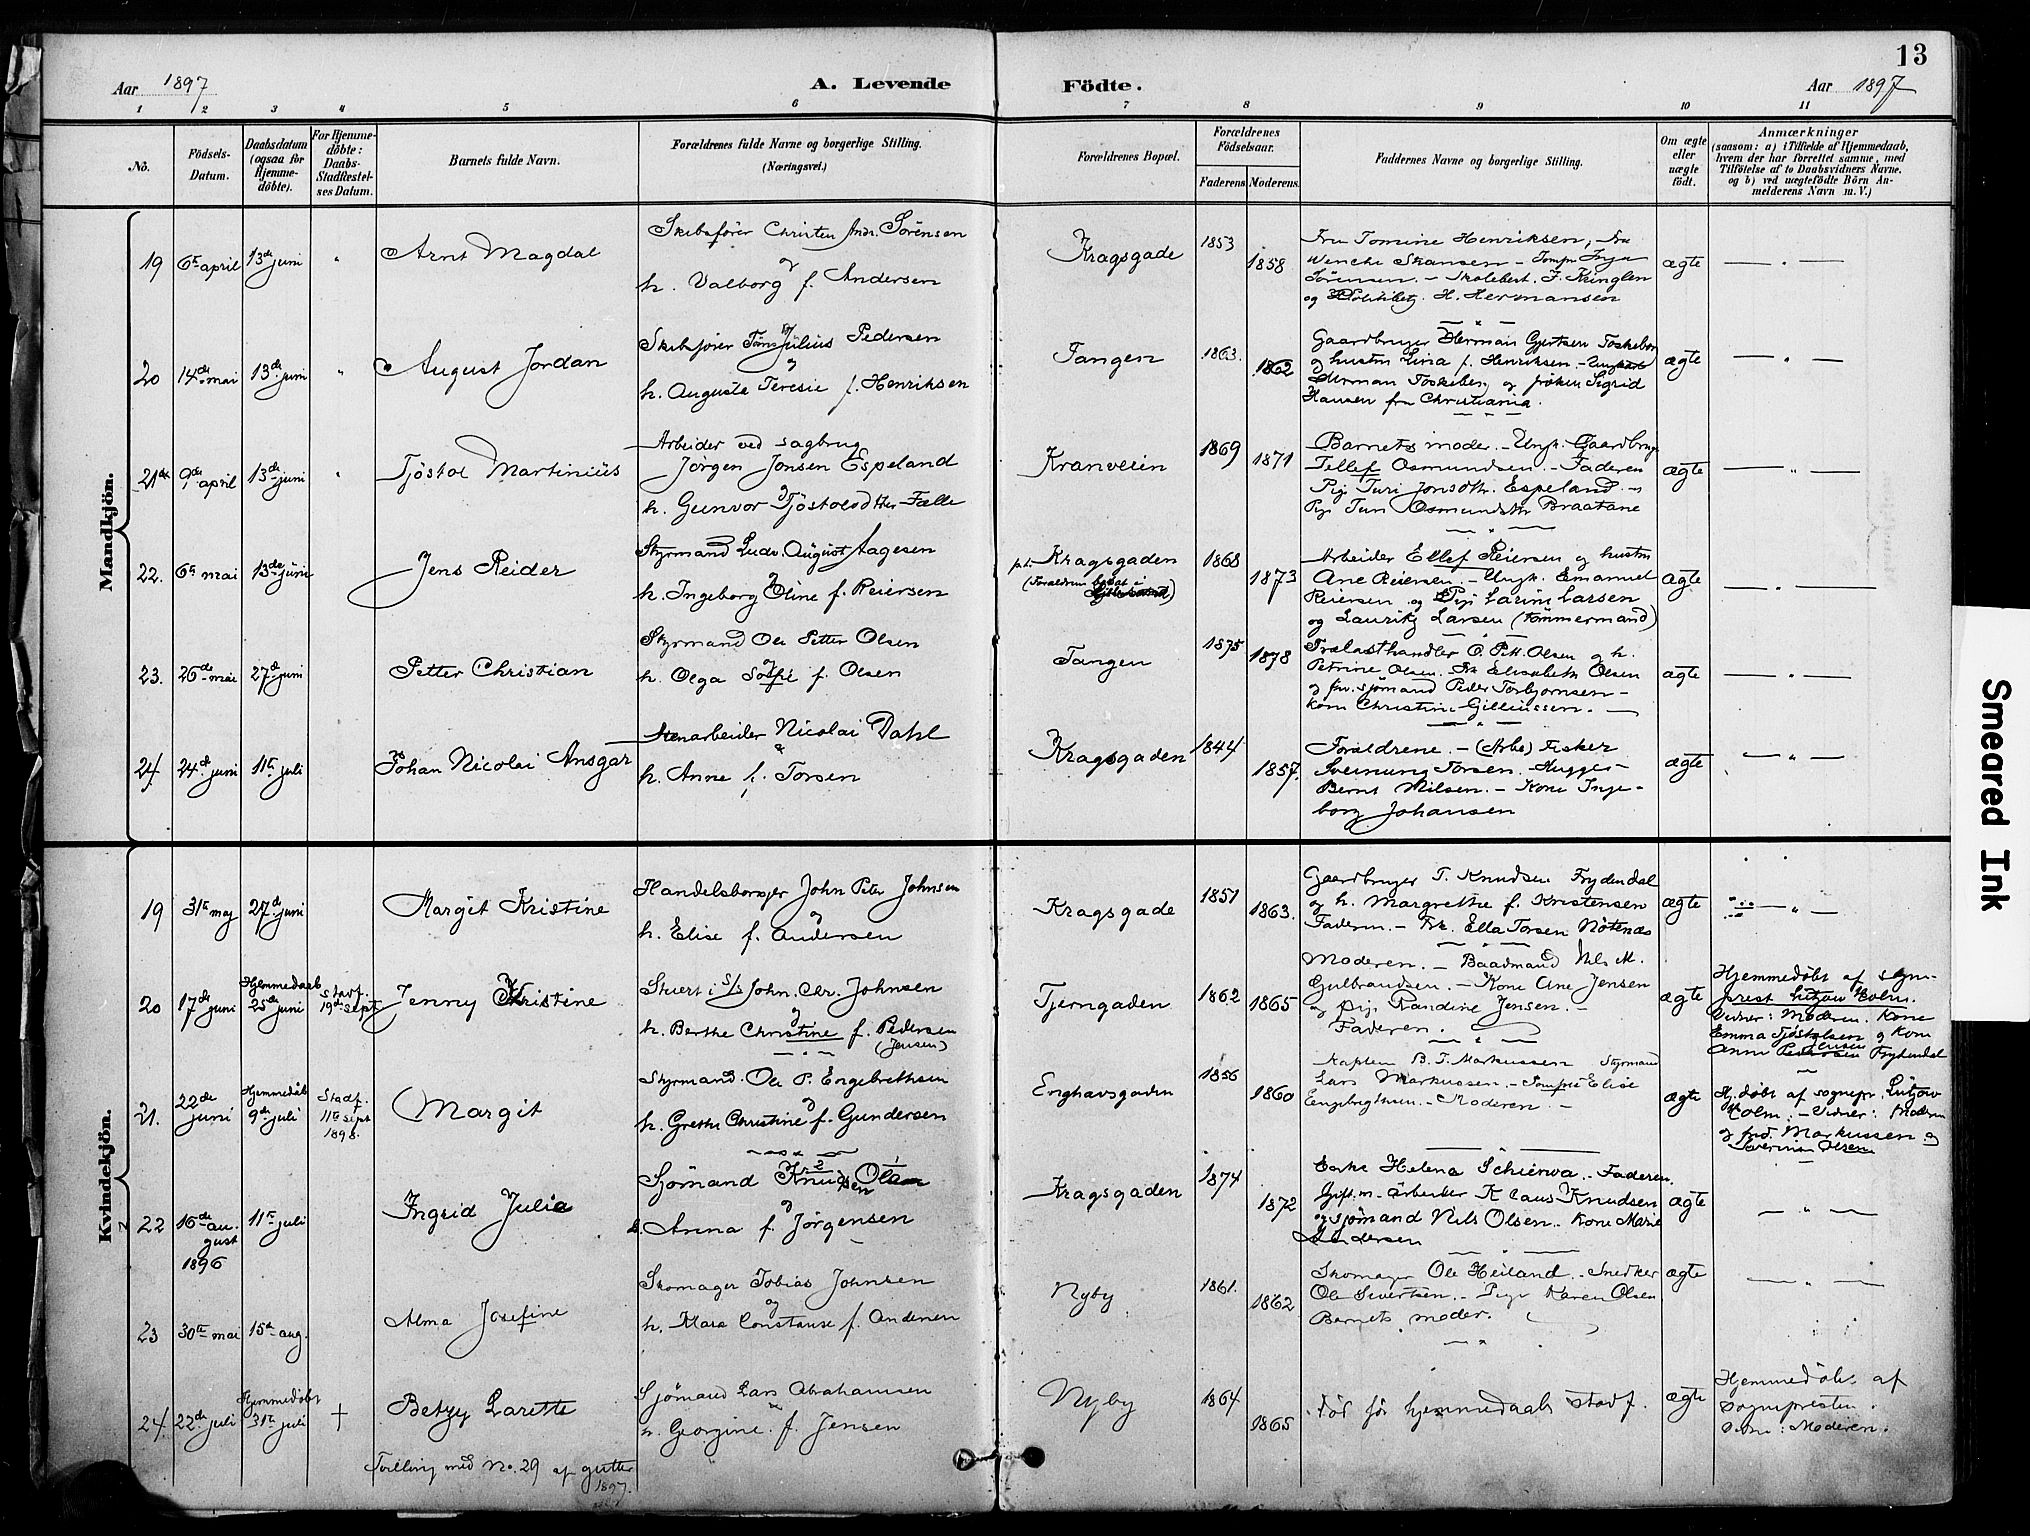 13
Aar 1897 A. Levende Födte. Aar 1897
1 2 3 4 5 6 7 8 9 10 11
No.
Födsels-
Datum.
Daabsdatum
(ogsaa for
Hjemme-
döbte).
For Hjemme-
döbte:
Daabs-
Stadfæstel-
ses Datum.
Barnets fulde Navn.
Forældrenes fulde Navne og borgerlige Stilling.
(Næringsvei.)
Forældrenes Bopæl.
Forældrenes
Födselsaar.
Faderens Moderens.
Faddernes Navne og borgerlige Stilling.
Om ægte
eller
uægte
födt.
Anmærkninger
(saasom: a) i Tilfælde af Hjemmedaab,
hvem der har forrettet samme, med
Tilföielse af to Daabsvidners Navne.
og b) ved uægtefödte Börn An-
melderens Navn m. V.)
Mandkjön.
19 6te april 13de juni " Arnt Magdal
Skibsfører Christen Andr. Sörensen
og
h. Valborg f. Andersen
Kragsgade 1853 1858
Fru Tomine Henriksen, fru
Wenche Skansen – Jomfr Inga
Sörensen. – Skolebest. F. Kringlen
og H. Hermansen
ægte — " —
20 14de mai 13de juni " August Jordan
Skibsfører Tönnes Julius Pedersen
og
h. Augusta Teresie f. Henriksen
Tangen 1863. 1862
Gaardbruger Herman Gjertsen Toskeberg
og hustru Lina f. Henriksen – Ungkarl
Herman Toskeberg og frøken Sigrid
Hansen fra Christiania.
ægte — " —
21de 9de april 13de juni " Tjöstol Martinius
Arbeider ved sagbrug
Jörgen Jonsen Espeland
og
h. Gunvor Tjöstolsdtter Fælle
Kranveien 1869 1871
Barnets moder. – Ungk. Gaardbrug
Tellef Osmundsen. – Faderen
Pige Turi Jonsdtr. Espeland –
Pige Turi Osmundsdtr Braatane
ægte — " —
22. 6te mai 13de juni Jens Reider
Styrmand Ludv. August Aagesen
og
h. Ingeborg Oline f. Reiersen
p.t. Kragsgaden
(Forældrene bosat i
1868 1873
Arbeider Ellef Reiersen og hustru
Ane Reiersen. – Ungk. Emanuel
Reiersen og Pige Larine Larsen
og Lauritz Larsen (tömmermand)
ægte — " —
23. 26de mai 27de juni Petter Christian
Styrmand Ole Petter Olsen
og
h. Olga Sofie f. Olsen
Tangen 1875 1878
Trælasthandler O. Pett. Olsen og h.
Petrine Olsen. Frk Elisabeth Olsen
og fhv. sjömand Peder Torbjornsen –
kone Christine Gilleussen. —
ægte — " —
24. 24de juni 11te juli Johan Nicolai Ansgar
Stenarbeider Nicolai Dahl
&
h. Anne f. Torsen
Kragsgaden 1844 1857.
Forældrene. – (Arb.) Fisker
Sveinung Torsen. Hugger
Bernt Nilsen. – Kone Inge-
borg Johansen
ægte — " —
Kvindekjön.
19 31te maj 27de juni Margit Kristine
Handelsborger John Peter Johnsen
og
h. Elise f. Andersen
Kragsgade 1851 1863.
Gaardbruger T. Knudsen Frydendal
og h. Margrethe f. Kristensen
Faderen. – Frk. Ella Torsen Nötenæs
ægte — " —
20 17de juni Hjemmedaab 25de juni Stadf. 19de sept. Jenny Kristine
Stuert i S/S John. Chr. Johnsen
og
h. Berthe Christine f. Pedersen
(Jensen)
Tjerngaden 1862 1865
Moderen. – Baadmand Nils M.
Gulbrandsen. – Kone Ane Jensen
og pige Randine Jensen. –
Faderen.
ægte
Hjemmedöbt af sogne-
prest Lützow Holm.
Vidner: Moderen. Kone
Emma Tjöstolsen og Kone
Anne Frydendal
21. 22de juni Hjemmedöbt 9de juli Stadf. 11te sept 1898. Margit
Styrmand. Ole P. Engebrethsen
og
h. Grethe Christine f. Gundersen
Enghavsgaden 1856 1860
Kaptein B. T. Markussen Styrmand
Lars Markussen. – Jomfru Elise
Engebrigtsen. – Moderen. –
ægte
Hj.døbt af sognepr. Lützow
Holm. – Vidner: Moderen
og frd. Markussen og
Severine Olsen
22 16de au-
gust
1896 11te juli Ingrid Julie
Sjömand Knud Olsen
&. Anna f. Jörgensen
Kragsgaden 1874 1872
Enke Helena Schierwa. . Faderen.
Gift.m. arbeider Klaus Knudsen
og sjömand Nils Olsen. Kone Marie
Andersen
ægte — " —
23 30te mai 15de aug. Alma Josefine
Skomager Tobias Johnsen
og
h. Mara Constanse f. Andersen
Nyby 1861. 1862
Skomager Ole Heiland. – Snedker
Ole Sivertsen. – Pige Karen Olsen
Barnets moder.
ægte — " —
24. 22de juli Hjemmedöbt 31te juli † Betzy Larette
Sjömand Lars Abrahamsen
h. Georgine f. Jensen
Nyby 1864 1865
Död för hjemmedaabs stadf.
ægte
Hjemmedöbt af
sognepresten.
Vidne: Moderen.
Tvilling med No. 29 af gutter
1897.
Smeared Ink